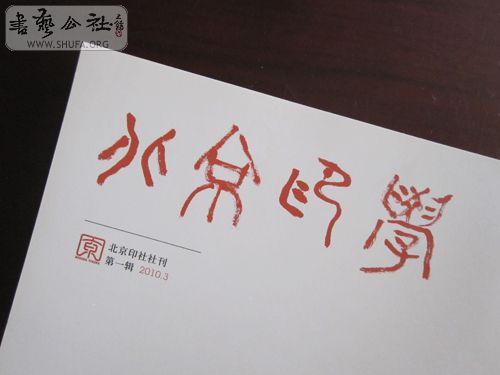 書藝公社
WWW.SHUFA.ORG
北京印學
北京印社社刊
第一辑 2010.3
京